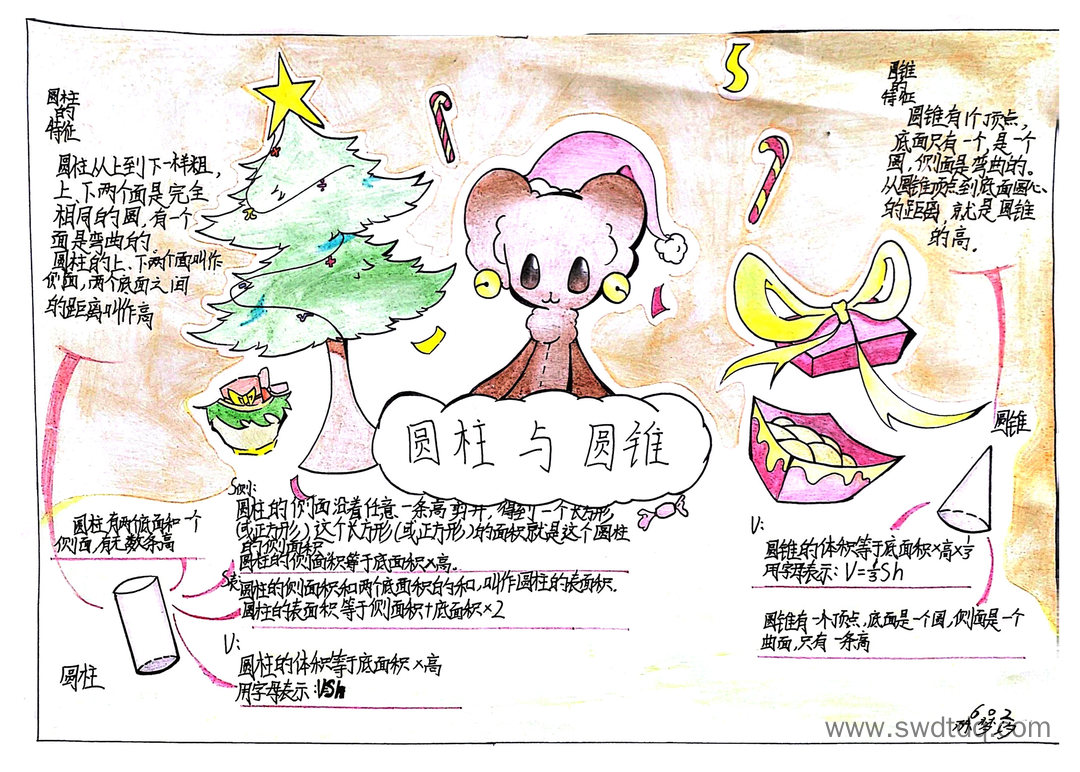 圆柱
的
特征
圆柱从上到下一样粗，
上、下两个面是完全
相同的圆，有一个
面是弯曲的。
圆柱的上、下两个面叫作
侧面，两个底面之间
的距离叫作高
圆锥
的
特征
圆锥有1个顶点，
底面只有一个，是一个
圆，侧面是弯曲的。
从圆锥顶点到底面圆心
的距离，就是圆锥
的高。
圆柱与圆锥
圆柱有两底面和一个
侧面，有无数条高
圆柱
S侧:
圆柱的侧面沿着任意一条高剪开，得到一个长方形
(或正方形)这个长方形(或正方形)的面积就是这个圆柱
的侧面积
圆柱的侧面积等于底面积×高。
S表:
圆柱的侧面积和两个底面积的和，叫作圆柱的表面积。
圆柱的表面积等于侧面积+底面积×2
V:
圆柱的体积等于底面积×高
用字母表示:V=Sh
圆锥
V:
圆锥的体积等于底面积×高×⅓
用字母表示: V=⅓Sh
圆锥有一个顶点，底面是一个圆，侧面是一个
曲面，只有一条高
602
www.swdtdq.com